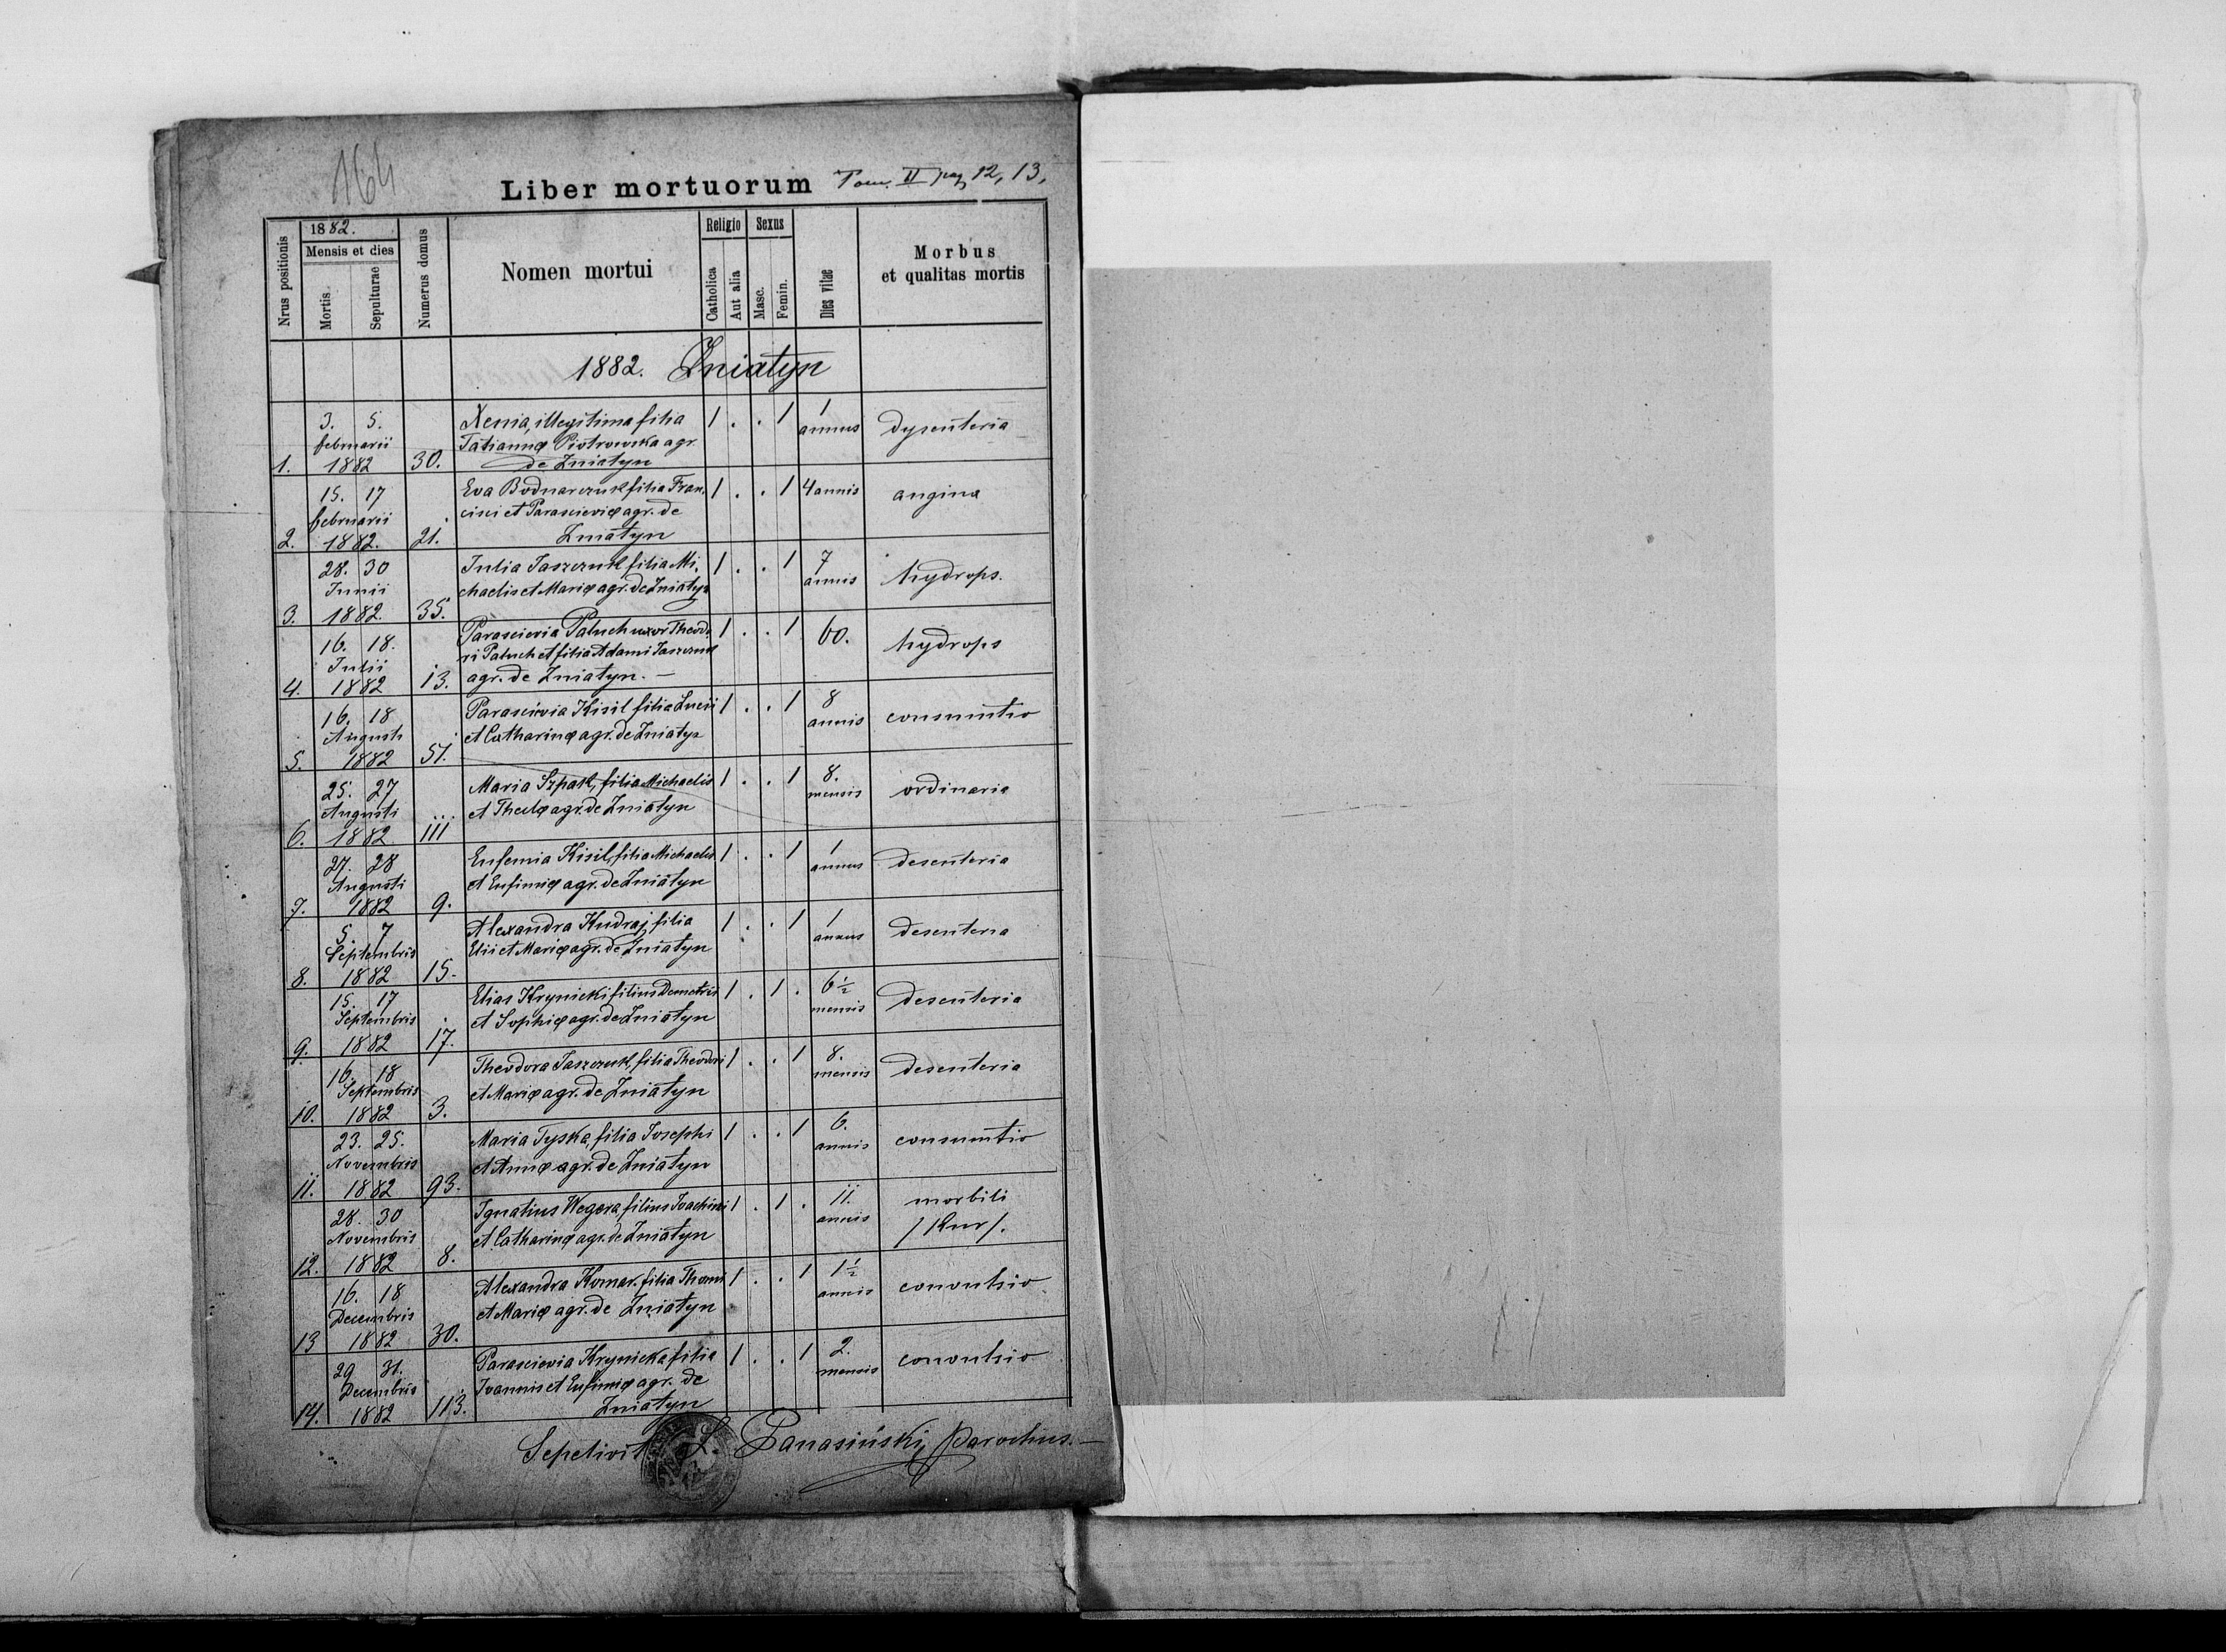 164
Liber mortuorum Tom. II pag 12, 13,
Nrus positionis
1882.
Mensis et dies
Mortis
Sepulturae
Numerus domus
Nomen mortui
Religio
Catholica
Aut alia
Sexus
Masc.
Femin.
Dies vitae
Morbus
et qualitas mortis
1882. Żniatyn
3. 5. Xenia, illegitima filia 1 . . 1 1
februarii Tatiannę Piotrowska agr. annus dysenteria
1. 1882 30. de Żniatyn
15. 17 Eva Bodnarczuk filia Fran, 1 . . 1 4 annis angina
februarii cisci et Parascievię agr. de
2. 1882. 21. Żniatyn
28. 30 Julia Jaszczuk filia Mi, 1 . . 1 7
Junii chaelis et Marię agr. de Żniatyn annis hydrops.
3. 1882. 35.
16. 18. Parascievia Paluch uxor Theodo 1 . . 1 60. hydrops
Julii ri Paluch et filia Adami Jaszczuk
4. 1882 13. agr. de Żniatyn. —
16. 18 Parascievia Kisil filia Lucii 1 . . 1 8
Augusti et Catharinę agr. de Żniatyn annis consumtio
5. 1882 51.
25. 27 Maria Szpak, filia Michaelis 1 . . 1 8.
Augusti et Theclę agr. de Żniatyn mensis ordinaria
6. 1882 111
27. 28 Eufemia Kisil, filia Michaelis 1 . . 1 1
Augusti et Eufimię agr. de Żniatyn annus desenteria
7. 1882 9.
5. 7 Alexandra Kudraj, filia 1 . . 1 1
Septembris Elii et Marię agr. de Żniatyn annus desenteria
8. 1882 15.
15. 17 Elias Krynicki filius Demetrii 1 . 1 . 6½
Septembris et Sophię agr. de Żniatyn mensis desenteria
9. 1882 17.
16. 18 Theodora Jaszczuk, filia Theodori 1 . . 1 8.
Septembris et Marię agr. de Żniatyn mensis desenteria
10. 1882 3.
23. 25. Maria Tyska, filia Josephi 1 . . 1 6.
Novembris et Annę agr. de Żniatyn annis consumtio
11. 1882 93.
28. 30 Ignatius Wegera, filius Joachimi 1 . 1 . 11. morbili
Novembris et Catharinę agr. de Żniatyn annis
12. 1882 8.
16. 18 Alexandra Komar. filia Thomi 1 . . 1 1½
Decembris et Marię agr. de Żniatyn annis convulsio
13 1882 30.
29 31. Parascievia Krynicka filia 1 . . 1 2.
Decembris Joannis et Eufimię agr. de mensis convulsio
14. 1882 113. Żniatyn
Sepelivit L. Panasiński, Parochus. —